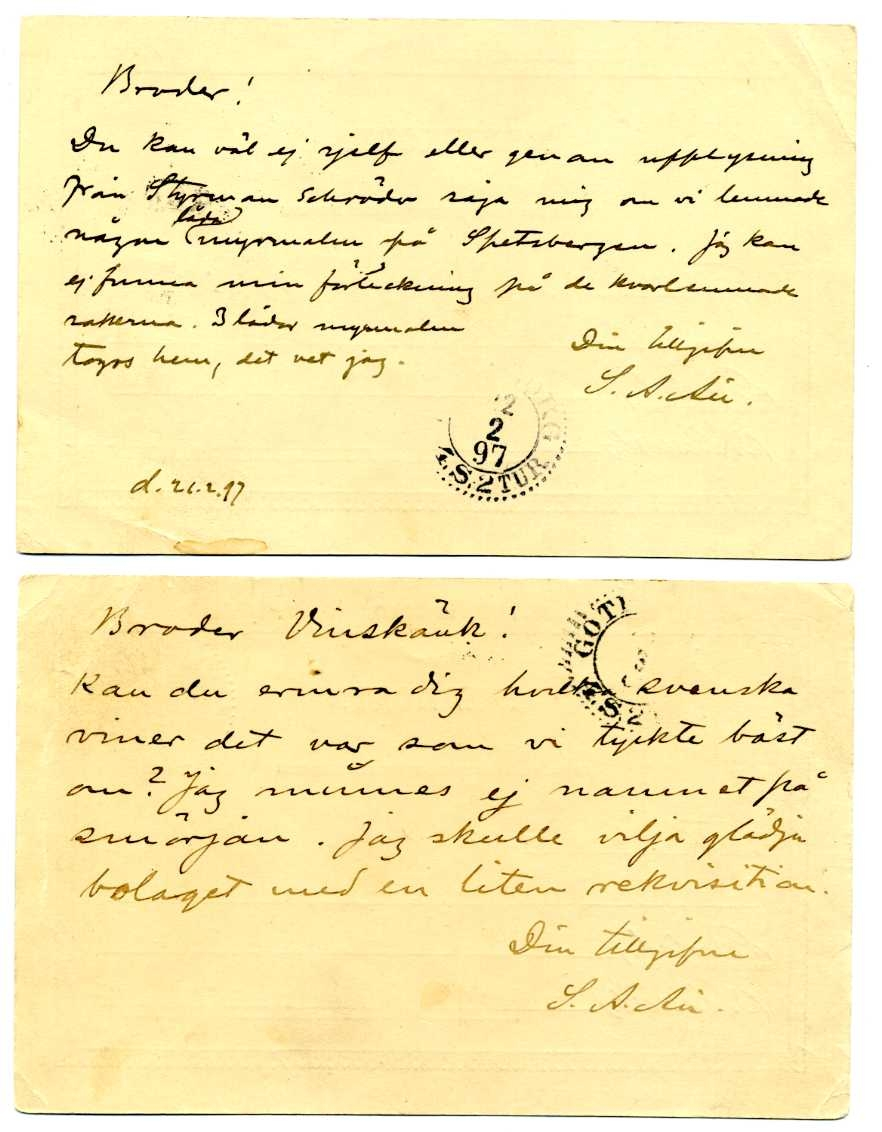 Broder!
Du kan väl ej sjelf eller genom upplysning
från Styrman Schröder säja mig om vi lemnade
låda
någon myrmalm på Spetsbergen. Jag kan
ej finna min förteckning på de kvarlemnade
sakerna. 3 lådor myrmalm
togos hem, det vet jag.
Din tillgifne
S. A. A
2
97
4.S.2TUR
d. 21.2.97
Broder Vinskänk!
Kan du erinra dig hvilka svenska
viner det var som vi tyckte bäst
om? Jag minnes ej namnet på
smörjan. Jag skulle vilja glädja
bolaget med en liten rekvisition.
Din tillgifne
S. A. A
GÖT
S.2